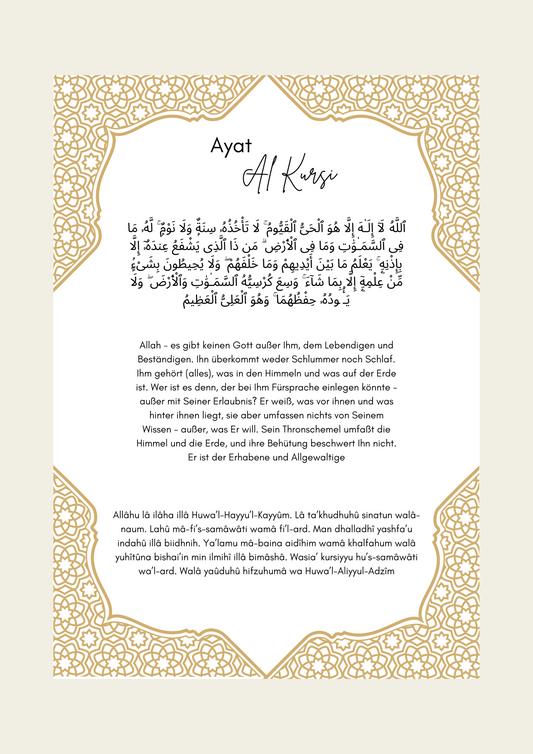 Ayat
Al Kursi
ٱللَّهُ لَآ إِلَـٰهَ إِلَّا هُوَ ٱلْحَىُّ ٱلْقَيُّومُ ۚ لَا تَأْخُذُهُۥ سِنَةٌ وَلَا نَوْمٌ ۚ لَّهُۥ مَا
فِى ٱلسَّمَـٰوَٰتِ وَمَا فِى ٱلْأَرْضِ ۗ مَن ذَا ٱلَّذِى يَشْفَعُ عِندَهُۥٓ إِلَّا
بِإِذْنِهِۦ ۚ يَعْلَمُ مَا بَيْنَ أَيْدِيهِمْ وَمَا خَلْفَهُمْ ۖ وَلَا يُحِيطُونَ بِشَىْءٍۢ
مِّنْ عِلْمِهِۦٓ إِلَّا بِمَا شَآءَ ۚ وَسِعَ كُرْسِيُّهُ ٱلسَّمَـٰوَٰتِ وَٱلْأَرْضَ ۖ وَلَا
يَـُٔودُهُۥ حِفْظُهُمَا ۚ وَهُوَ ٱلْعَلِىُّ ٱلْعَظِيمُ
Allah – es gibt keinen Gott außer Ihm, dem Lebendigen und
Beständigen. Ihn überkommt weder Schlummer noch Schlaf.
Ihm gehört (alles), was in den Himmeln und was auf der Erde
ist. Wer ist es denn, der bei Ihm Fürsprache einlegen könnte –
außer mit Seiner Erlaubnis? Er weiß, was vor ihnen und was
hinter ihnen liegt, sie aber umfassen nichts von Seinem
Wissen – außer, was Er will. Sein Thronschemel umfaßt die
Himmel und die Erde, und ihre Behütung beschwert Ihn nicht.
Er ist der Erhabene und Allgewaltige
Allâhu lâ ilâha illâ Huwa’l-Hayyu’l-Kayyûm. Lâ ta’khudhuhû sinatun walâ-
naum. Lahû mâ-fi’s-samâwâti wamâ fi’l-ard. Man dhalladhî yashfa’u
indahû illâ biidhnih. Ya’lamu mâ-baina aidîhim wamâ khalfahum walâ
yuhîtûna bishai’in min ilmihî illâ bimâshâ. Wasia’ kursiyyu hu’s-samâwâti
wa’l-ard. Walâ yaûduhû hifzuhumâ wa Huwa’l-Aliyyul-Adzîm